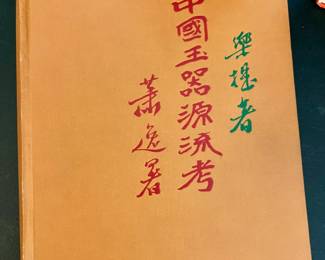 樂著
中國玉器源流考
蕭逸署